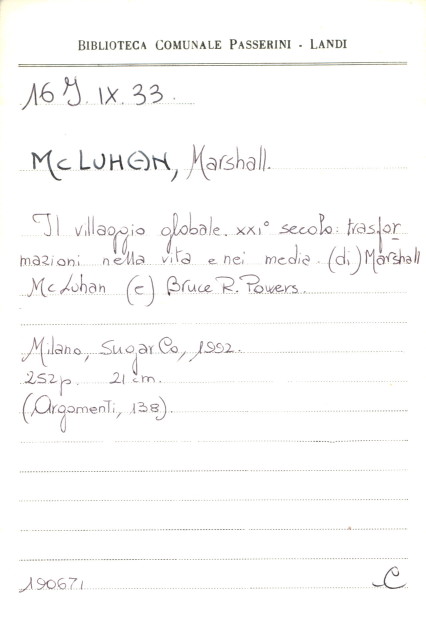 BIBLIOTECA COMUNALE PASSERINI - LANDI
16 J. IX. 33.
McLUHAN, Marshall.
Il villaggio globale. XXI° secolo: trasfor
mazioni nella vita e nei media. (di) Marshall
McLuhan (e) Bruce R. Powers.
Milano, SugarCo, 1992.
252 p. 21 cm.
(Argomenti, 138).
190671
C